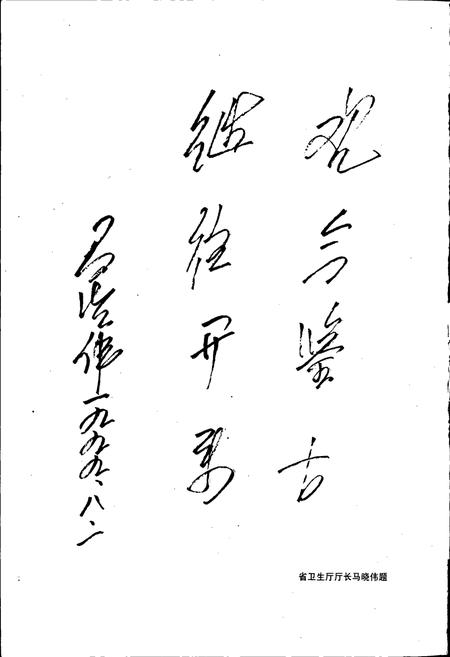 观今鉴古
继往开来
马晓伟 一九九九、八、二
省卫生厅厅长马晓伟题